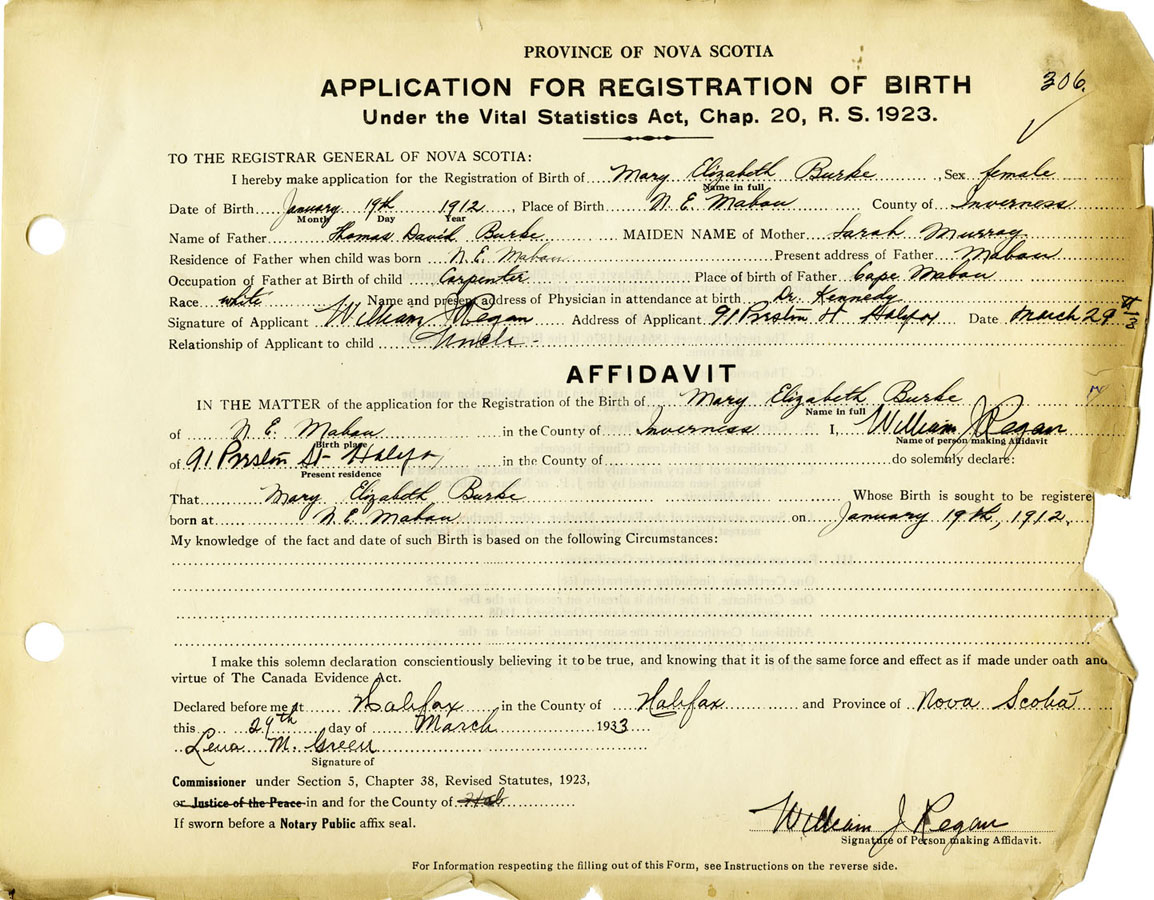 PROVINCE OF NOVA SCOTIA
306.
APPLICATION FOR REGISTRATION OF BIRTH
Under the Vital Statistics Act, Chap. 20, R. S. 1923.
TO THE REGISTRAR GENERAL OF NOVA SCOTIA:
I hereby make application for the Registration of Birth of Mary Elizabeth Burke, Sex female
Name in full
Date of Birth January 19th 1912, Place of Birth N. E. Mabou County of Inverness
Month Day Year
Name of Father Thomas David Burke MAIDEN NAME of Mother Sarah Murray
Residence of Father when child was born N. E. Mabou Present address of Father Mabou
Occupation of Father at Birth of child Carpenter Place of birth of Father Cape Mabou
Race white Name and present address of Physician in attendance at birth Dr. Kennedy
Signature of Applicant William J Regan Address of Applicant 91 Preston St Halifax Date March 29
Relationship of Applicant to child Uncle -
AFFIDAVIT
IN THE MATTER of the application for the Registration of the Birth of Mary Elizabeth Burke
Name in full
of N. E. Mabou in the County of Inverness I, William J Regan
Birth place Name of person making Affidavit
of 91 Preston St Halifax in the County of do solemnly declare:
Present residence
That Mary Elizabeth Burke Whose Birth is sought to be registere
born at N. E. Mabou on January 19th, 1912.
My knowledge of the fact and date of such Birth is based on the following Circumstances:
I make this solemn declaration conscientiously believing it to be true, and knowing that it is of the same force and effect as if made under oath and
virtue of The Canada Evidence Act.
Declared before me at Halifax in the County of Halifax and Province of Nova Scotia
this 29th day of March 1933
Lena M. Green
Signature of
Commissioner under Section 5, Chapter 38, Revised Statutes, 1923,
or Justice of the Peace in and for the County of
If sworn before a Notary Public affix seal.
William J Regan
Signature of Person making Affidavit.
For Information respecting the filling out of this Form, see Instructions on the reverse side.